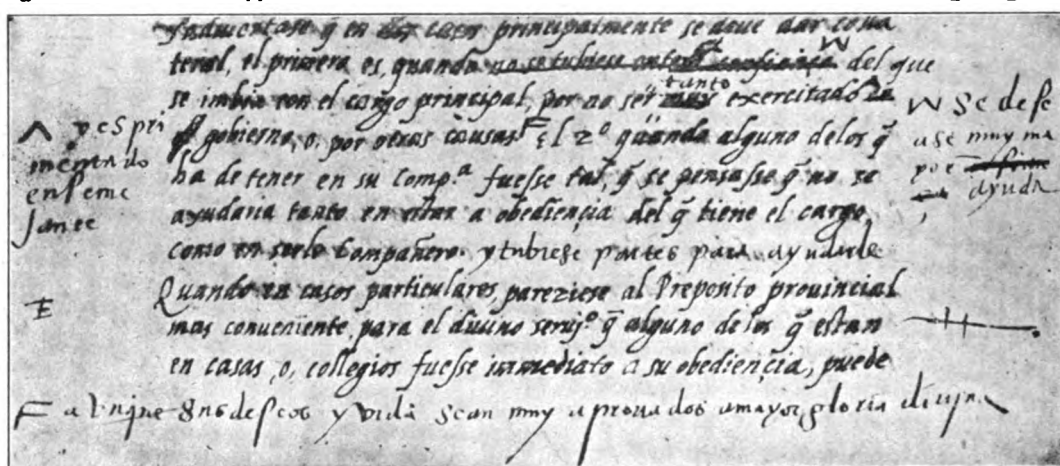 principalmente se deue dar cola
teral, el primero es, quando no se tubiese entera confiança del que
tanto
se imbia con el cargo principal, por no ser muy exercitado en
gobierno, o, por otras causas F El 2º quando alguno delos q̄
ha de tener en su Comp.ª fuesse tal, q̄ se pensasse q̄ no se
ayudaria tanto en estar a obediençia del q̄ tiene el cargo,
como en serle Compañero. y tubiese partes para ayudarle
Quando en casos particulares, pareziese al Preposito prouincial
mas conueniente, para el diuino seruj.º q̄ alguno delos q̄ estan
en casas, o, collegios fuesse immediato a su obediençia, puede
F aunque sus deseos y vida sean muy aprouados a mayor gloria diuina
y espri
mentado
en seme
jante
E
W se dese
ase muy ma
yor
ayuda